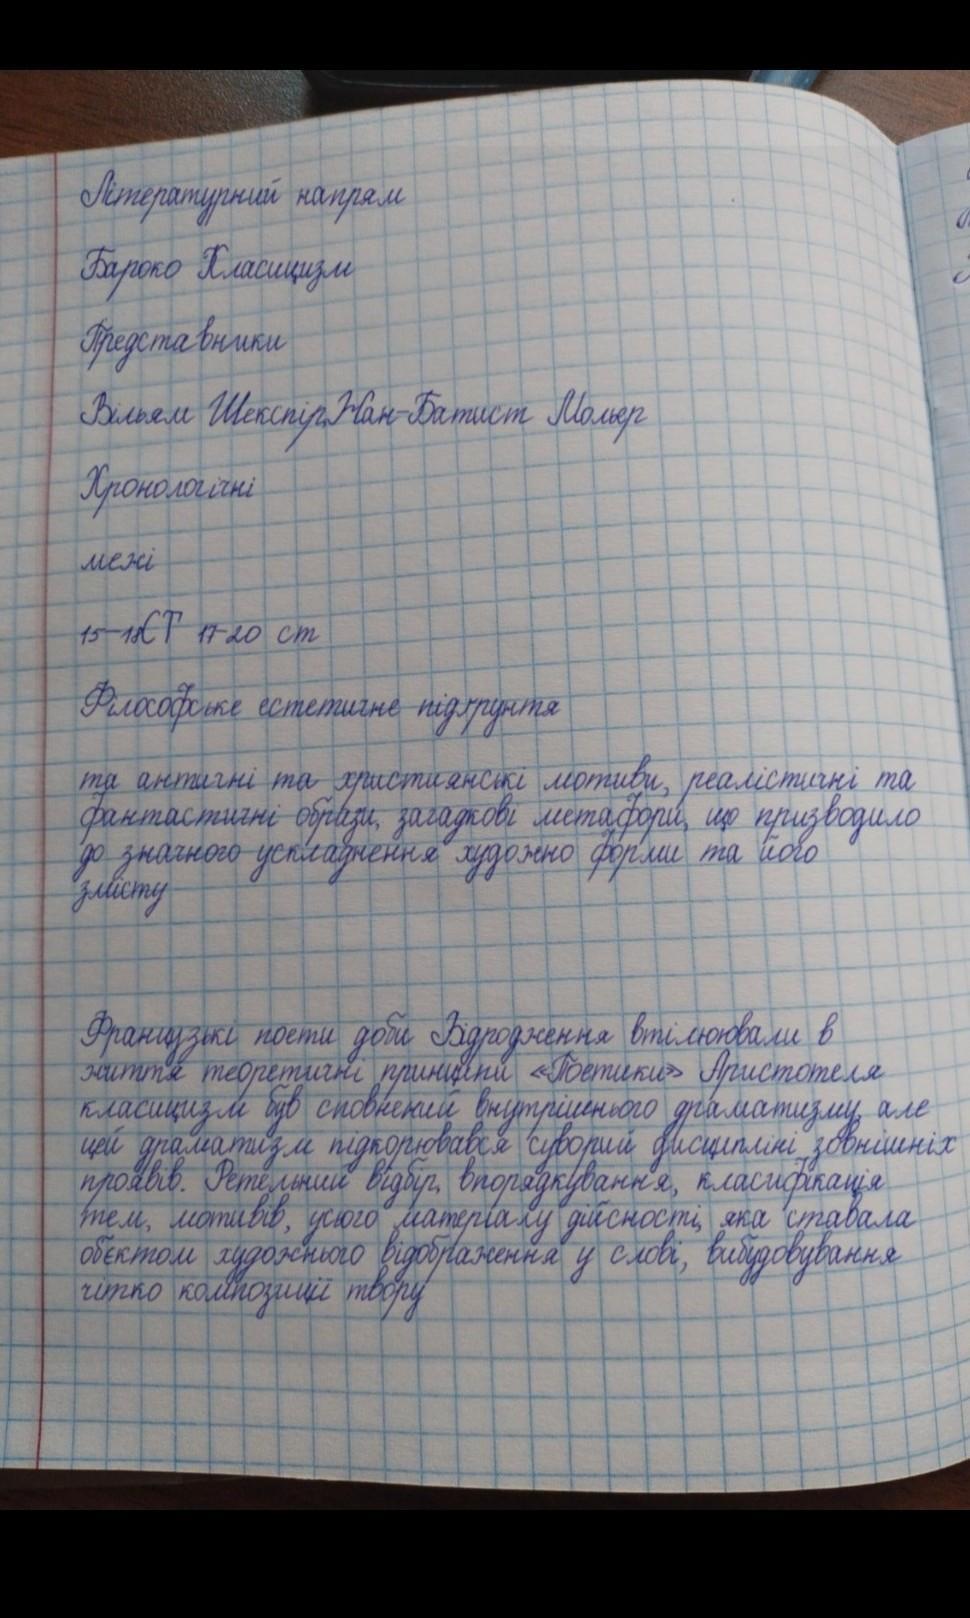 Літературний напрям
Бароко Класицизм
Представники
Вільям Шекспір,Жан-Батист Мольєр
Хронологічні
межі
15-18СТ 17-20 ст
Філософське естетичне підґрунтя
та античні та християнські мотиви, реалістичні та
фантастичні образи, загадкові метафори, що призводило
до значного ускладнення художно форми та його
змісту
Французькі поети доби Відродження втілюювали в
життя теоретичні принципи «Поетики» Аристотеля
класицизм був сповнений внутрішнього драматизму, але
цей драматизм підкорювався суворий дисципліні зовнішніх
проявів. Ретельний відбір, впорядкування, класифікація
тем, мотивів, усього матеріалу дійсності, яка ставала
обєктом художнього відображення у слові, вибудовування
чітко композиції твору